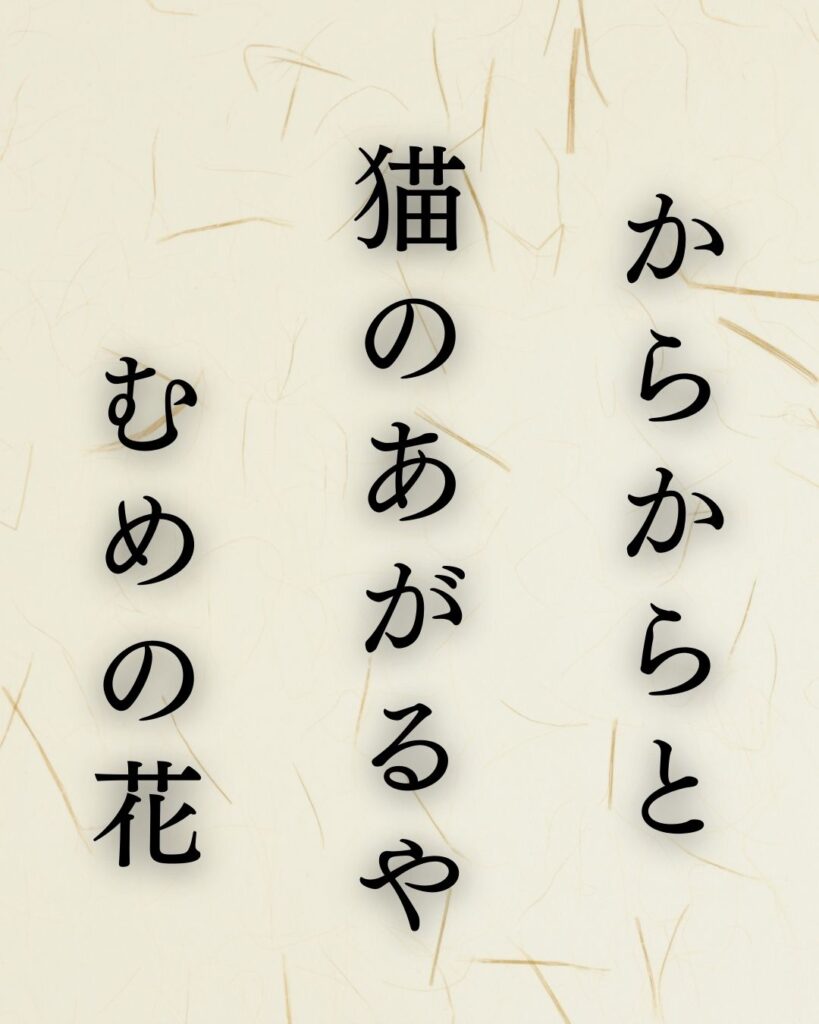 からからと
猫のあがるや
むめの花